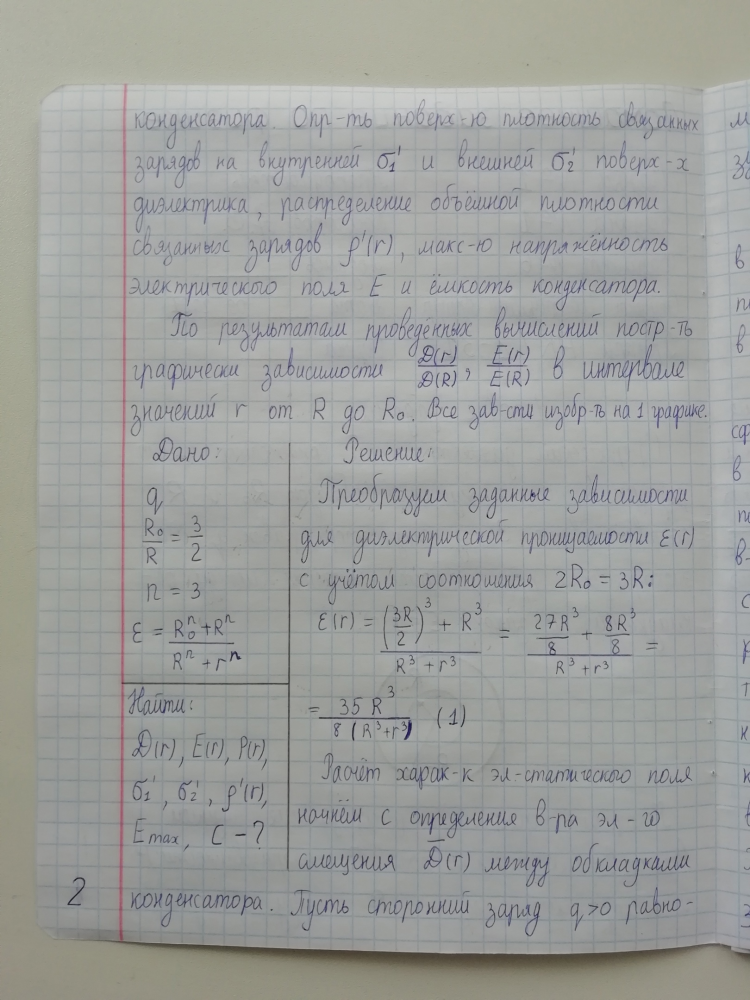 конденсатора. Опр-ть поверх-ю плотность связанных
зарядов на внутренней σ₁' и внешней σ₂' поверх-х
диэлектрика, распределение объёмной плотности
связанных зарядов ρ'(r), макс-ю напряжённость
электрического поля E и ёмкость конденсатора.
По результатам проведённых вычислений постр-ть
графически зависимости D(r)/D(R), E(r)/E(R) в интервале
значений r от R до R₀. Все зав-сти изобр-ть на 1 графике.
Дано:
q
R₀/R = 3/2
n = 3
ε = (R₀ⁿ + Rⁿ)/(Rⁿ + rⁿ)
Найти:
D(r), E(r), P(r),
σ₁', σ₂', ρ'(r),
Emax, C - ?
Решение:
Преобразуем заданные зависимости
для диэлектрической проницаемости ε(r)
с учётом соотношения 2R₀ = 3R:
ε(r) = ((3R/2)³ + R³)/(R³ + r³) = (27R³/8 + 8R³/8)/(R³ + r³) =
= 35R³/(8(R³ + r³)) (1)
Расчёт харак-к эл-статического поля
начнём с определения в-ра эл-го
смещения D̅(r) между обкладками
конденсатора. Пусть сторонний заряд q>0 равно-
2